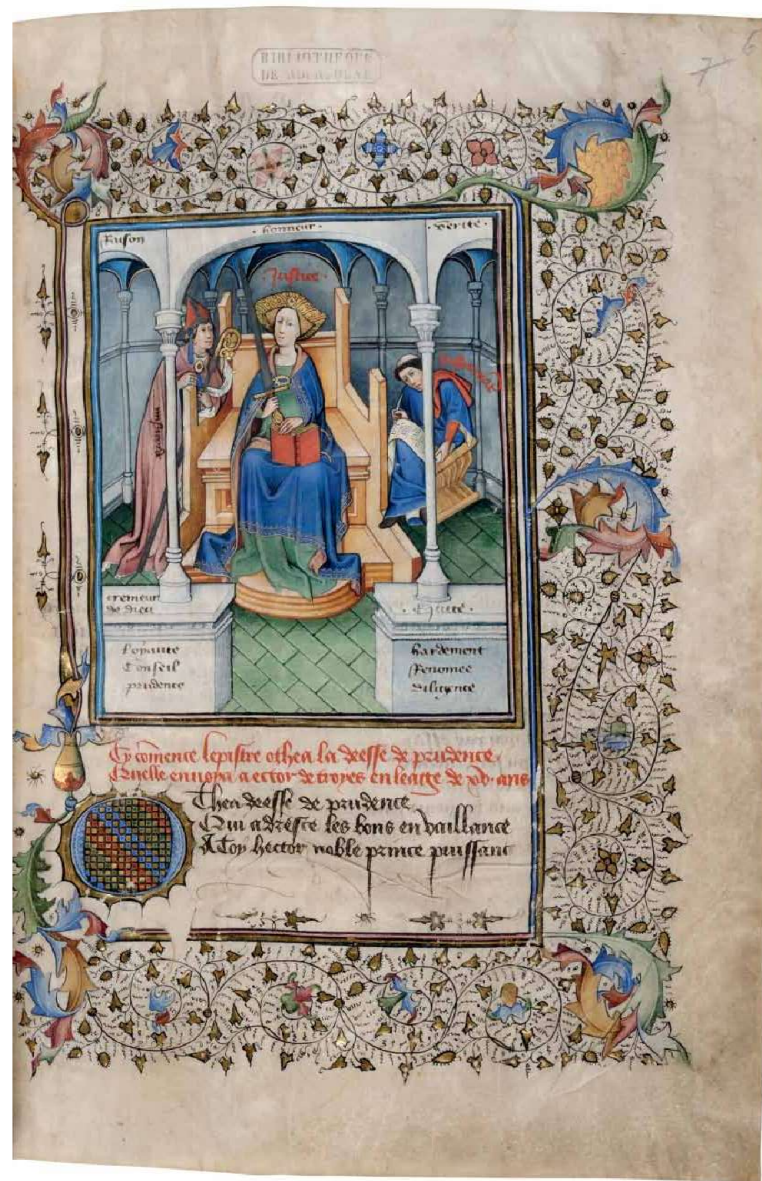 BIBLIOTHEQUE
DE
7 6
Raison
honneur
verite
Justice
cremeur
de dieu
Equite
Loyaute
Conseil
prudence
hardement
Renomee
diligence
Cy comence lepistre othea la deesse de prudence
Quelle envoya a ector de troyes en leage de xv ans
Othea deesse de prudence
Qui adresce les bons en vaillance
A Toy hector noble prince puissant